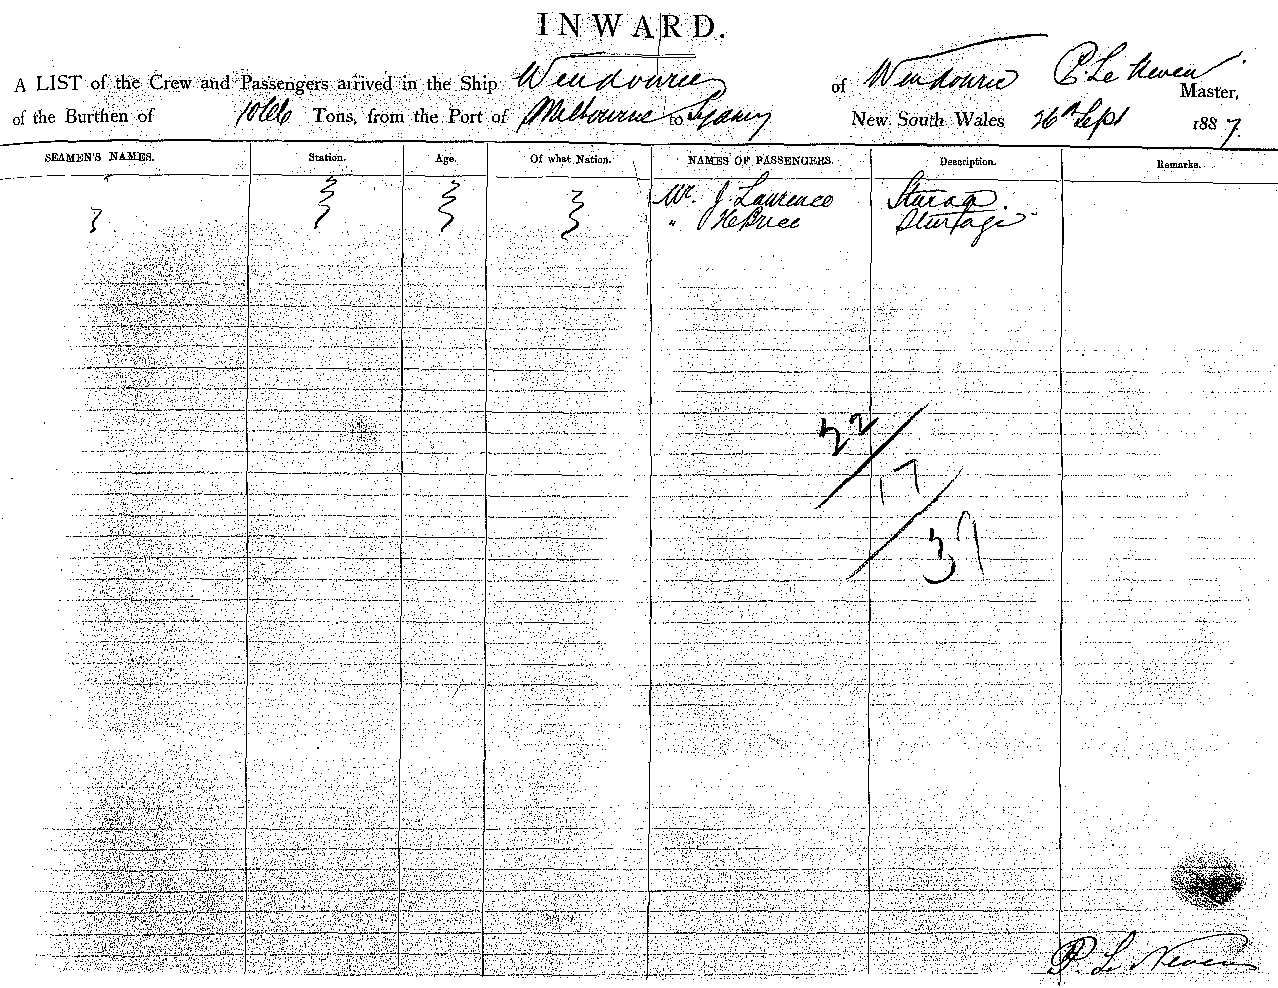 INWARD.
A LIST of the Crew and Passengers arrived in the Ship Wendouree of Wendouree P Le Neven Master,
of the Burthen of Tons, from the Port of Melbourne to Sydney New South Wales 26th Sept 1887.
SEAMEN'S NAMES. Station. Age. Of what Nation. NAMES OF PASSENGERS. Description. Remarks.
Mr. J. Laurence
" H Price Steerage
22
17
37
P. Le Neven